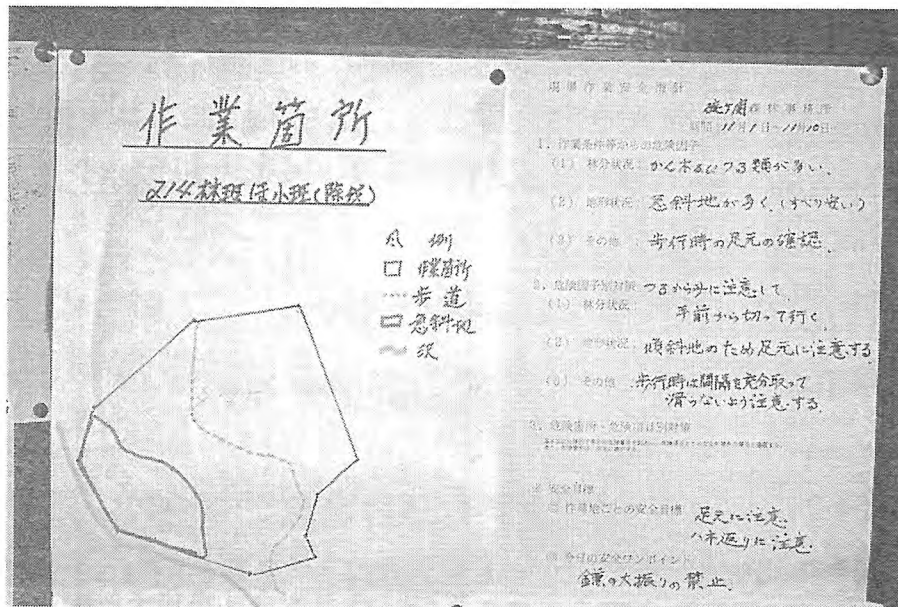 作業箇所
214林班ほ小班(除伐)
凡例
作業箇所
歩道
急斜地
沢
現場作業安全指針
森林事務所
期間 11月1日~11月10日
1．作業条件等からの危険因子
(1) 林分状況: かん木及びつる類が多い.
(2) 地形状況: 急斜地が多く.(すべり安い)
(3) その他 : 歩行時の足元の確認.
2．危険因子別対策
(1) 林分状況: つるがらみに注意して、
手前から切って行く.
(2) 地形状況: 傾斜地のため足元に注意する
(3) その他 : 歩行時は間隔を充分取って
滑らないよう注意する.
3．危険箇所・危険項目別対策
4 安全目標
作業地ごとの安全目標 足元に注意.
ハネ返りに注意.
今日の安全ワンポイント
鎌の大振りの禁止.